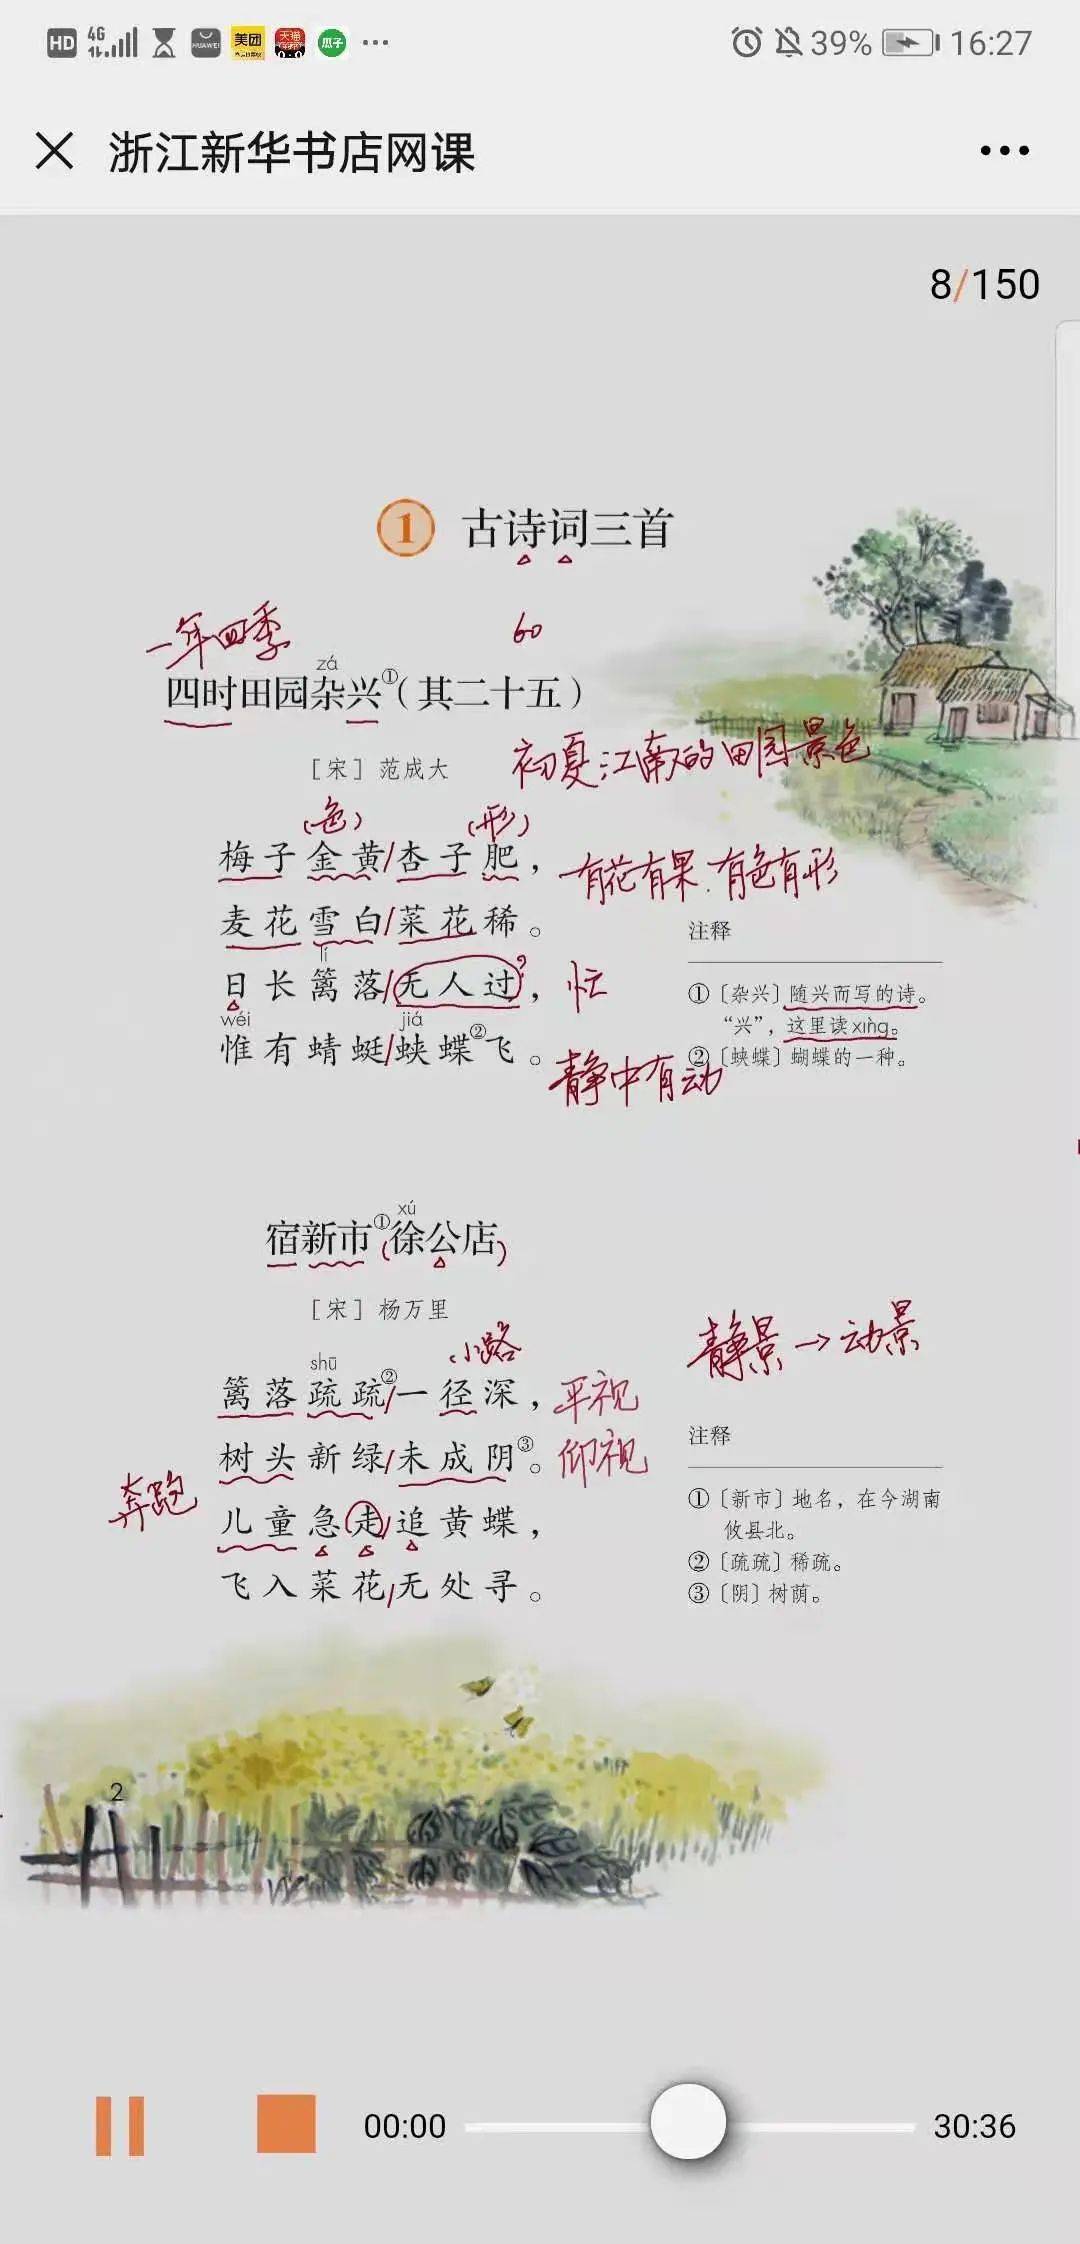 HD 4G HUAWEI 美团 天猫 瓜子 ··· 39% 16:27
浙江新华书店网课
8/150
1 古诗词三首
一年四季
60
zá
四时田园杂兴①（其二十五）
［宋］范成大
初夏江南的田园景色
（色）
（形）
梅子金黄/杏子肥，
有花有果.有色有形
麦花雪白/菜花稀。
lí
日长篱落/无人过，
忙
wéi jiá
惟有蜻蜓/蛱蝶②飞。
静中有动
注释
①〔杂兴〕随兴而写的诗。
“兴”，这里读xìng。
②〔蛱蝶〕蝴蝶的一种。
xú
宿新市①(徐公店)
［宋］杨万里
小路
shū
篱落疏疏②/一径深，
平视
静景→动景
树头新绿/未成阴③。
仰视
奔跑
儿童急走/追黄蝶，
飞入菜花/无处寻。
注释
①〔新市〕地名，在今湖南
攸县北。
②〔疏疏〕稀疏。
③〔阴〕树荫。
2
00:00
30:36